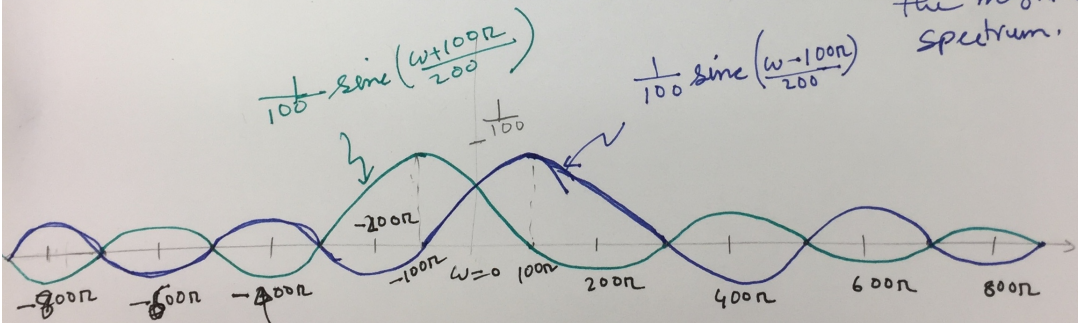 the
spectrum.
1/100 sinc (ω+100π/200)
1/100 sinc (ω-100π/200)
1/100
-200π
-100π ω=0 100π
-800π -600π -400π 200π 400π 600π 800π